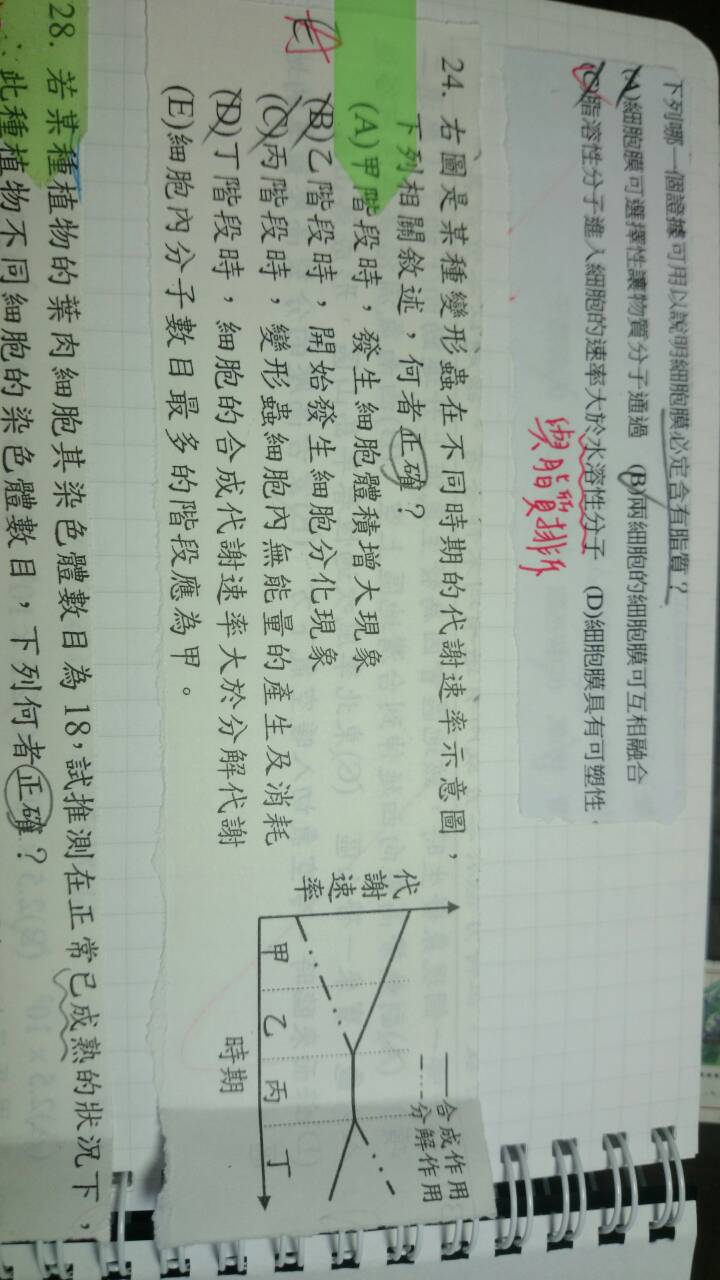 下列哪一個證據可用以說明細胞膜必定含有脂質？
(A)細胞膜可選擇性讓物質分子通過 (B)兩細胞的細胞膜可互相融合
(C)脂溶性分子進入細胞的速率大於水溶性分子 (D)細胞膜具有可塑性
與脂質排斥
24. 右圖是某種變形蟲在不同時期的代謝速率示意圖，
下列相關敘述，何者正確？
(A)甲階段時，發生細胞體積增大現象
(B)乙階段時，開始發生細胞分化現象
(C)丙階段時，變形蟲細胞內無能量的產生及消耗
(D)丁階段時，細胞的合成代謝速率大於分解代謝
(E)細胞內分子數目最多的階段應為甲。
代謝速率
合成作用
分解作用
甲 乙 丙 丁
時期
28. 若某種植物的葉肉細胞其染色體數目為18，試推測在正常已成熟的狀況下，
此種植物不同細胞的染色體數目，下列何者正確？